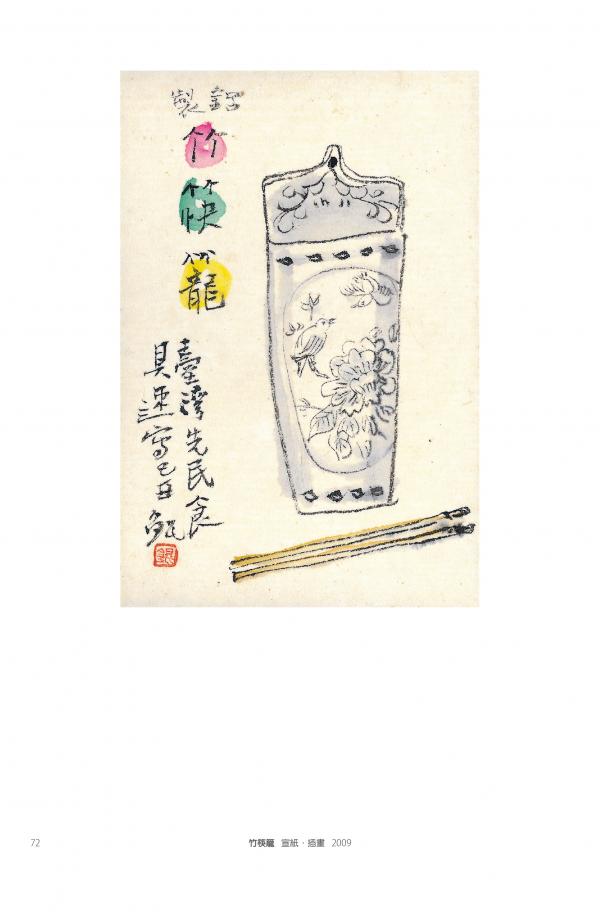 鋁製
竹筷籠
臺灣先民食
具速寫己丑
72
竹筷籠 宣紙・插畫 2009